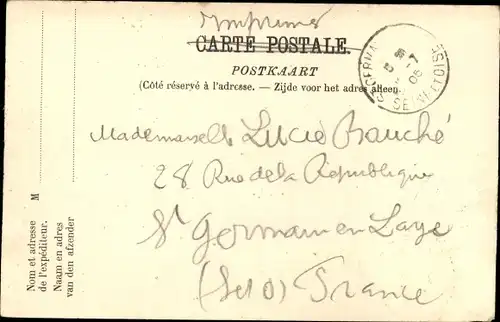 Imprimés
CARTE POSTALE.
POSTKAART
(Côté réservé à l'adresse. — Zijde voor het adres alleen.
Mademoiselle Lucie Bauché
28 Rue de la République
St Germain en Laye
(S et O) France
M
Nom et adresse
de l'expéditeur.
Naam en adres
van den afzender